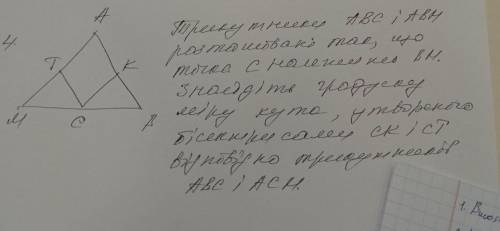 4.
A
T
K
M
C
B
Трикутники ABC і ABM
розташовані так, що
точка C належить BM.
Знайдіть градусну
міру кута, утвореного
бісектрисами CK і CT
відповідно трикутників
ABC і ACM.
1.